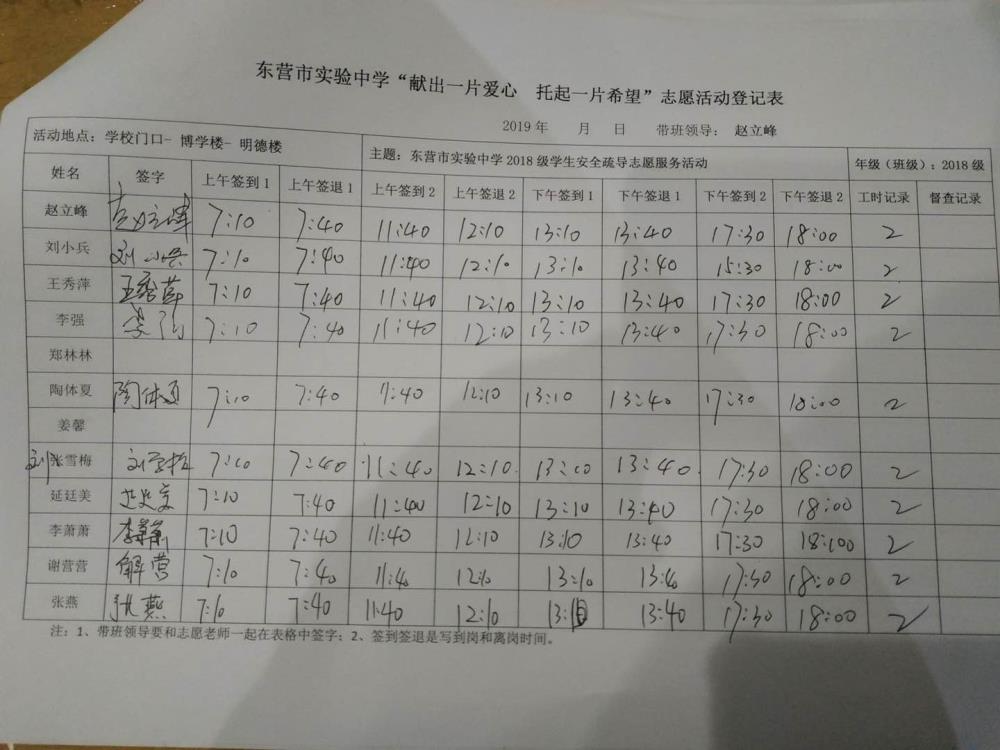 东营市实验中学“献出一片爱心 托起一片希望”志愿活动登记表
2019年 月 日 带班领导: 赵立峰
活动地点: 学校门口- 博学楼- 明德楼 主题: 东营市实验中学2018级学生安全疏导志愿服务活动 年级(班级): 2018级
姓名 签字 上午签到1 上午签退1 上午签到2 上午签退2 下午签到1 下午签退1 下午签到2 下午签退2 工时记录 督查记录
赵立峰 赵立峰 7:10 7:40 11:40 12:10 13:10 13:40 17:30 18:00 2
刘小兵 刘小兵 7:10 7:40 11:40 12:10 13:10 13:40 15:30 18:00 2
王秀萍 王秀萍 7:10 7:40 11:40 12:10 13:10 13:40 17:30 18:00 2
李强 李强 7:10 7:40 11:40 12:10 13:10 13:40 17:30 18:00 2
郑林林
陶体夏 陶体夏 7:10 7:40 11:40 12:10 13:10 13:40 17:30 18:00 2
姜馨
张雪梅 7:10 7:40 11:40 12:10 13:10 13:40 17:30 18:00 2
延廷美 7:10 7:40 11:40 12:10 13:10 13:40 17:30 18:00 2
李萧萧 李萧萧 7:10 7:40 11:40 12:10 13:10 13:40 17:30 18:00 2
谢营营 解营 7:10 7:40 11:40 12:10 13:10 13:40 17:30 18:00 2
张燕 张燕 7:10 7:40 11:40 12:10 13:10 13:40 17:30 18:00 2
注: 1、带班领导要和志愿老师一起在表格中签字; 2、签到签退是写到岗和离岗时间。